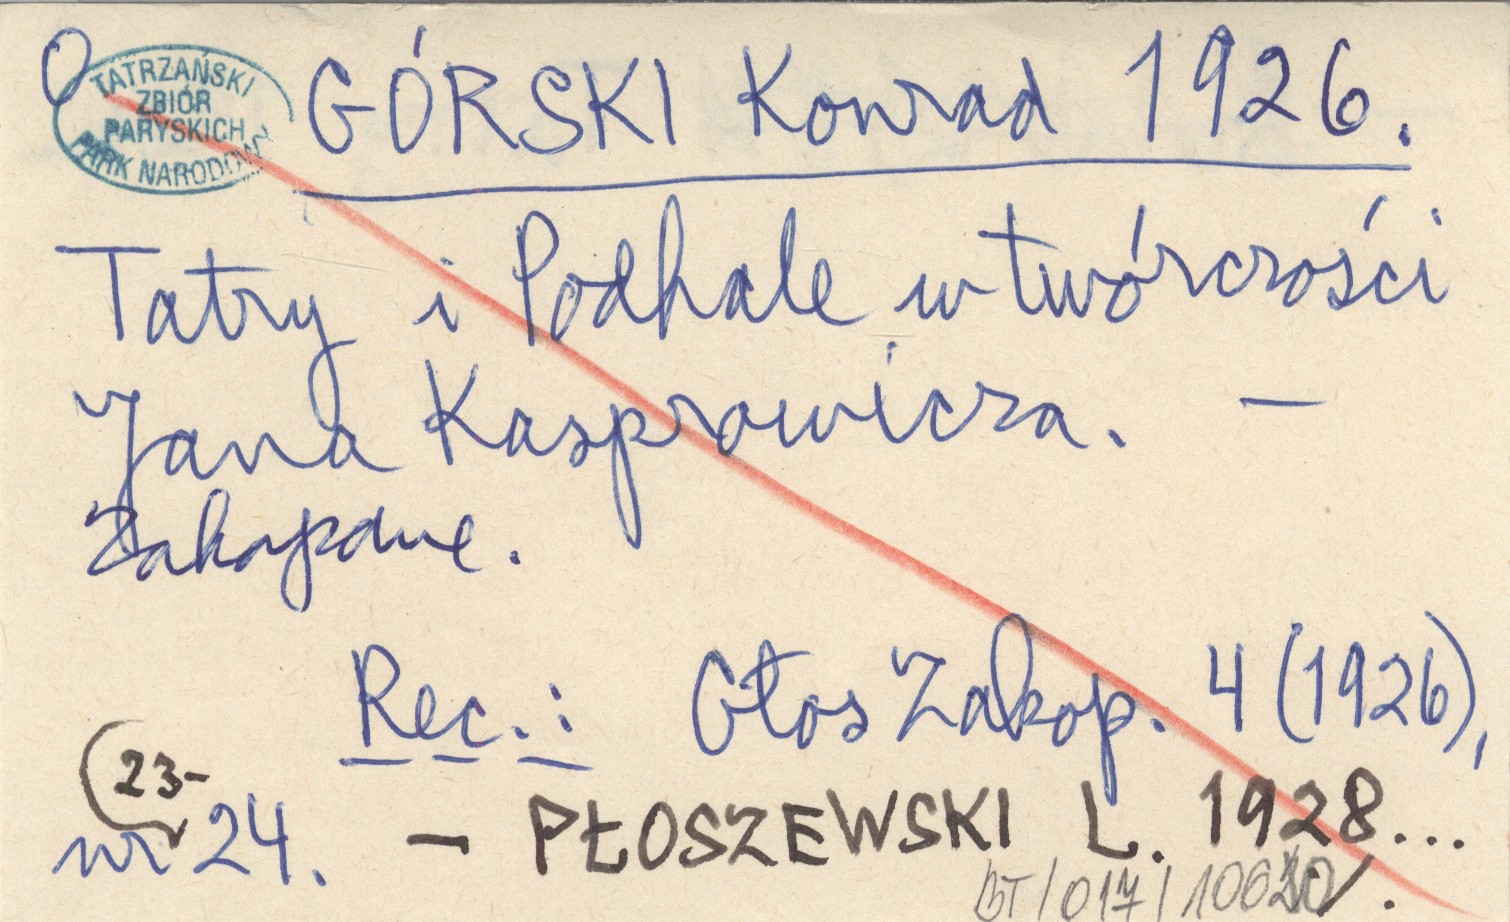 O
TATRZAŃSKI
ZBIÓR
PARYSKICH
PARK NARODOWY
GÓRSKI Konrad 1926.
Tatry i Podhale w twórczości
Jana Kasprowicza. —
Zakopane.
Rec.: Głos Zakop. 4 (1926),
23-
nr 24. — PŁOSZEWSKI L. 1928...
BT/017/